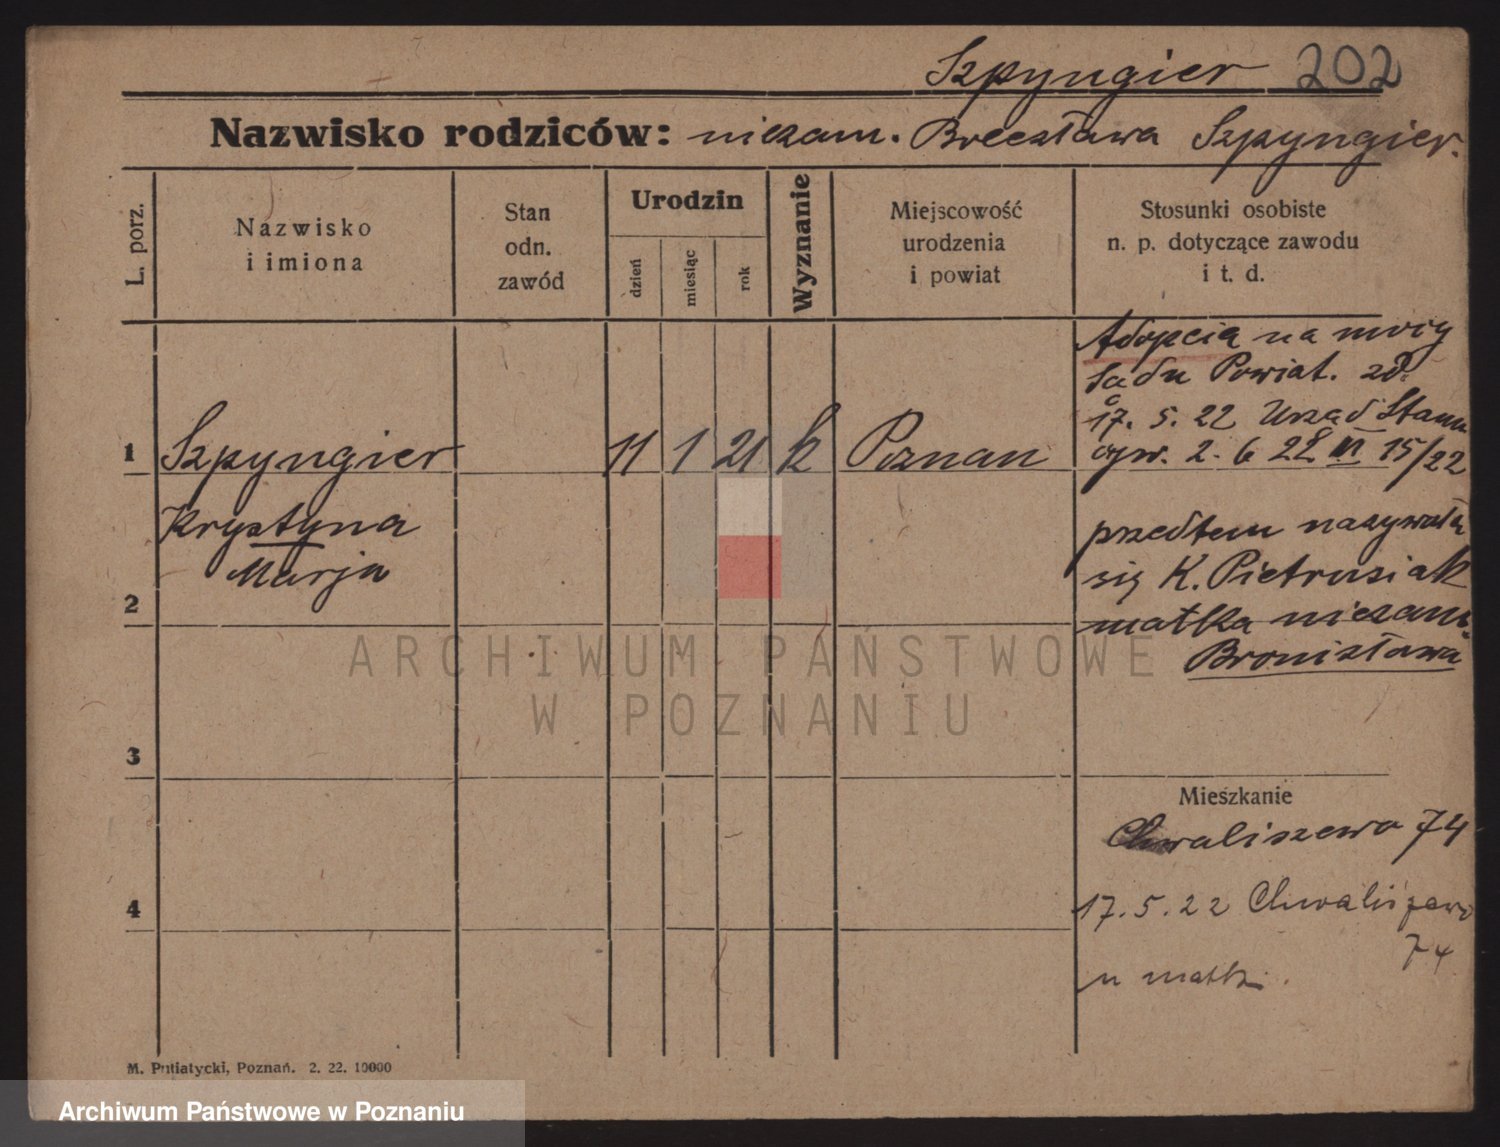 Szpyngier 202
Nazwisko rodziców: niezam. Brecsława Szpyngier.
L. porz.
Nazwisko
i imiona
Stan
odn.
zawód
Urodzin
dzień
miesiąc
rok
Wyznanie
Miejscowość
urodzenia
i powiat
Stosunki osobiste
n. p. dotyczące zawodu
i t. d.
Adopcia na mocy
Sadu Powiat. zd.
17. 5. 22 Urząd Stanu
cyw. 2. 6 22 III 15/22
1 Szpyngier 11 1 21 k Poznan
Krystyna
Marja
przedtem nazywała
się K. Pietrusiak
matka niezam.
Bronisława
2
3
4
Mieszkanie
Chwaliszewo 74
17. 5. 22 Chwaliszewo
74
u matk.
M. Putiatycki, Poznań. 2. 22. 10000
ARCHIWUM PAŃSTWOWE
W POZNANIU
Archiwum Państwowe w Poznaniu